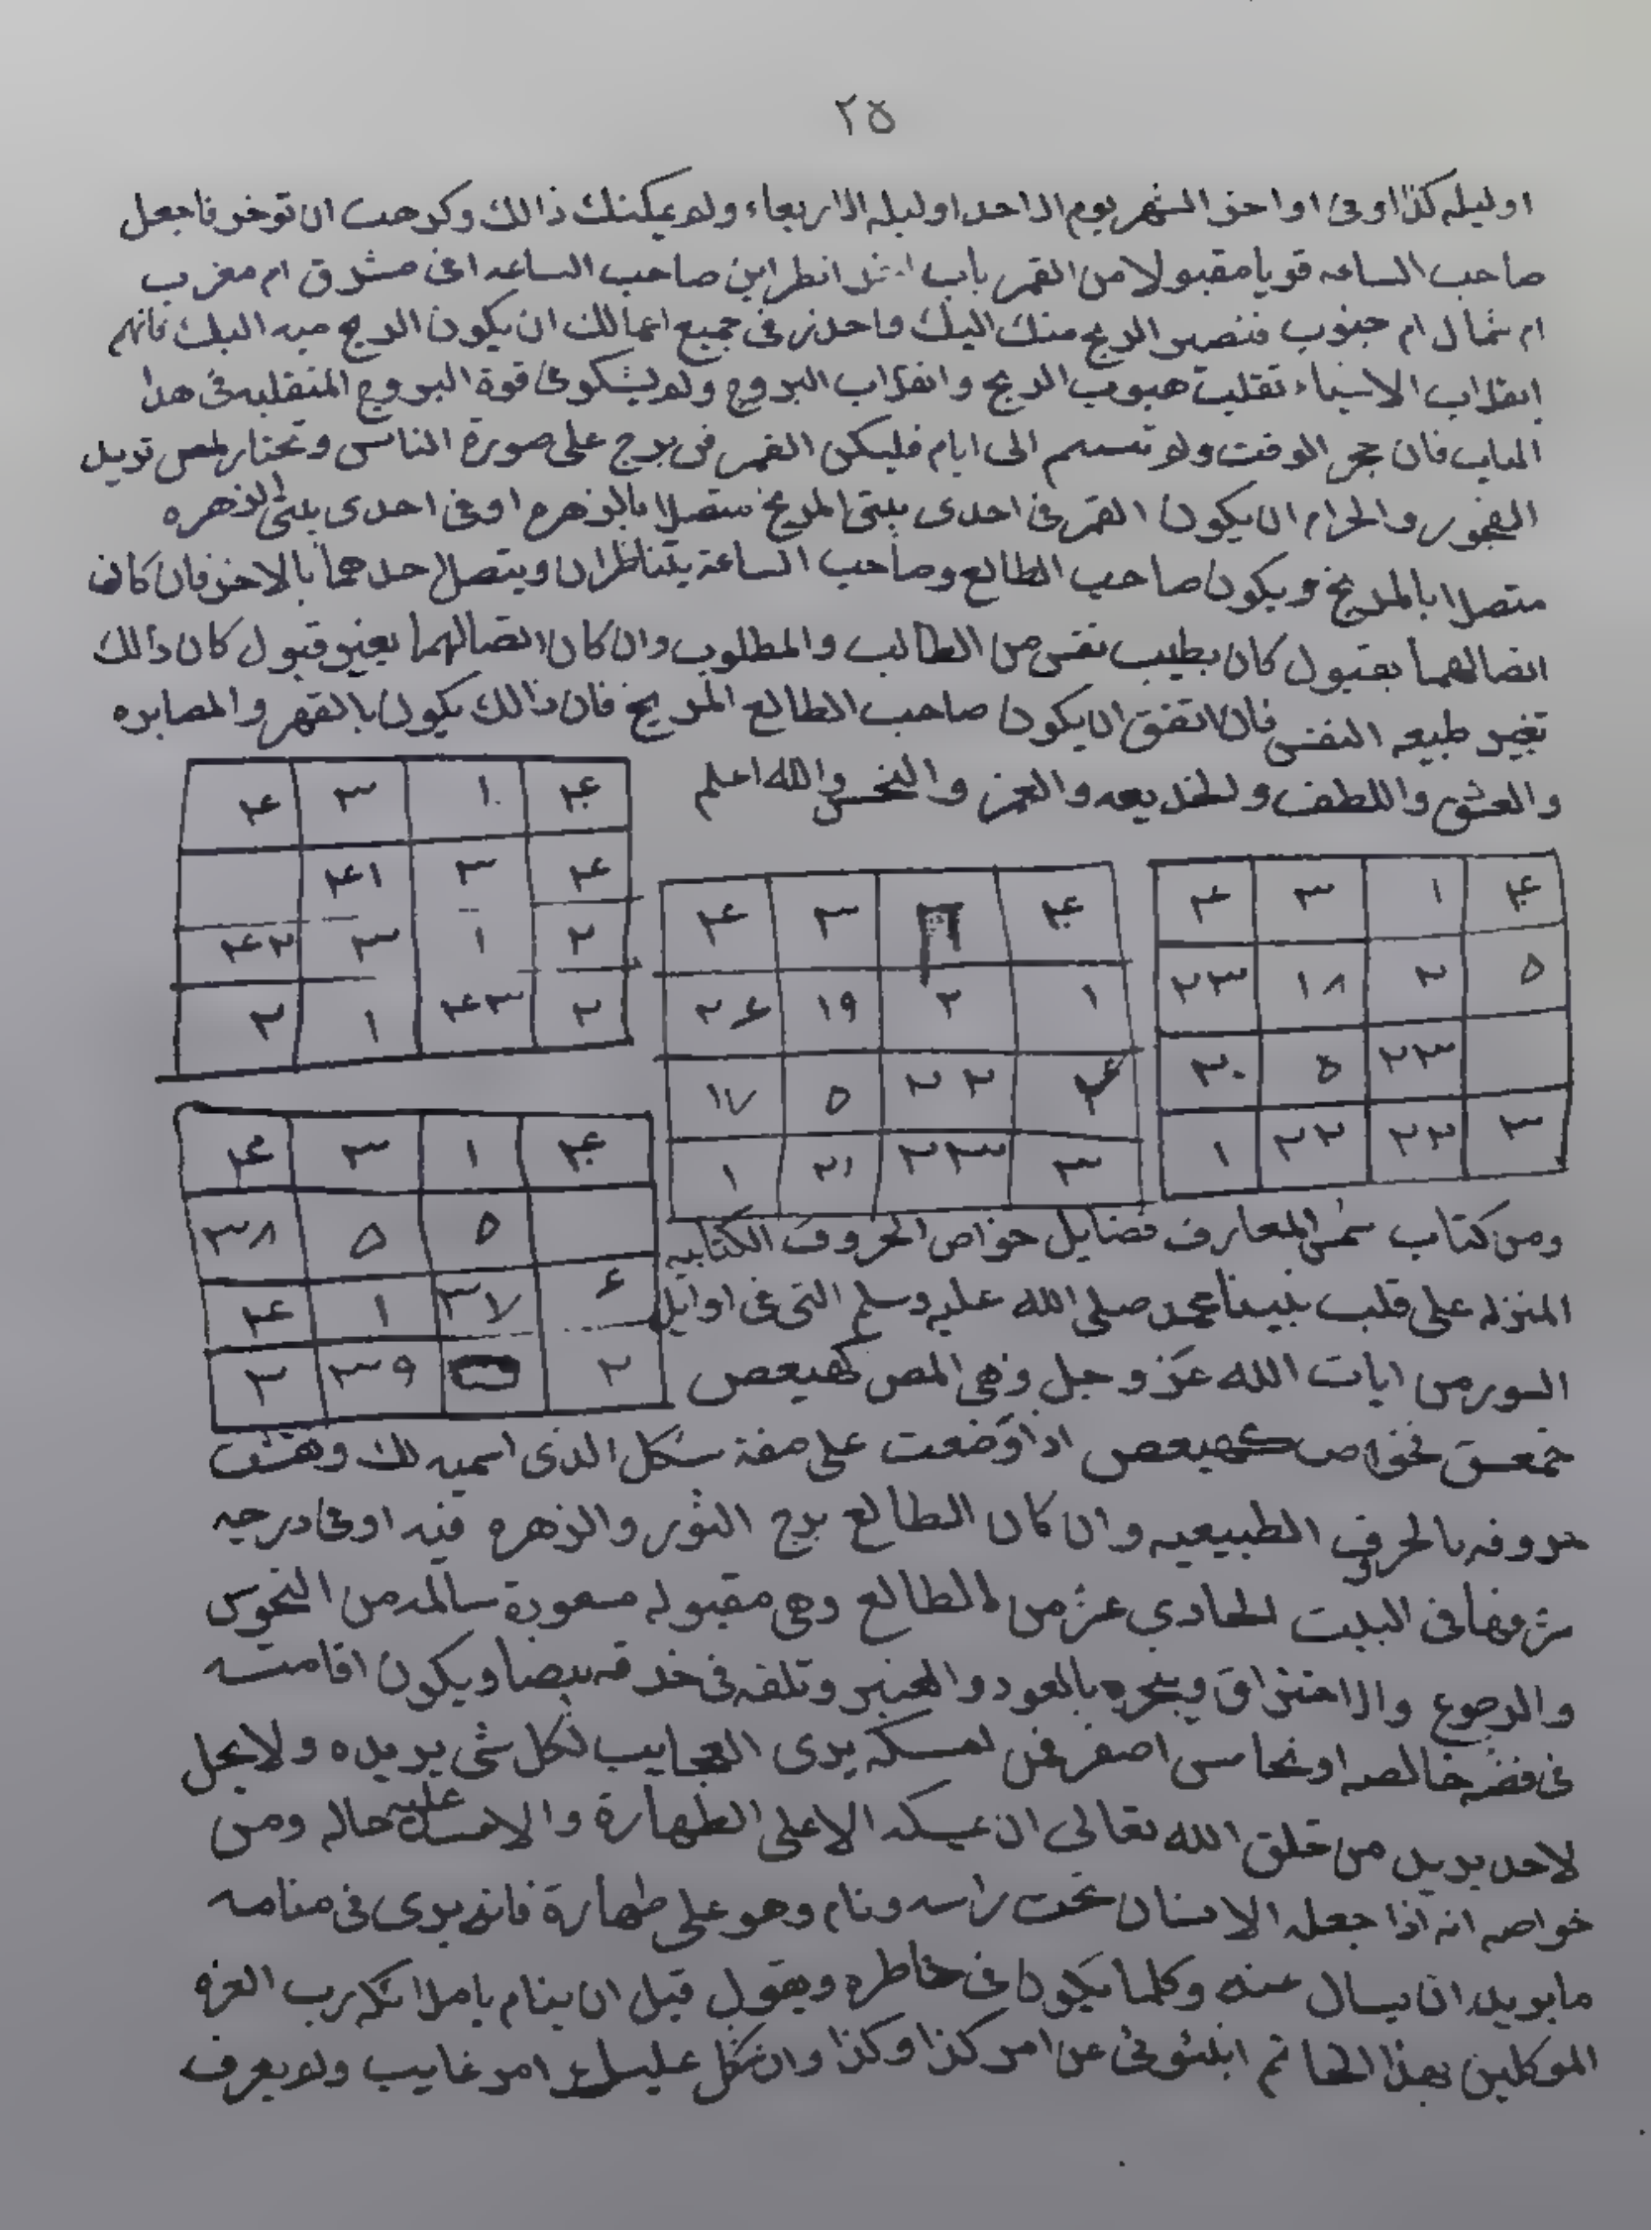 ٢٥
او ليله كذا وفى اواخر الشهر يوم الاحد او ليله الاربعاء ولم يمكنك ذالك وكرهت ان توخر فاجعل
صاحب الساعه قويا مقبولا من القمر باب انظر اين صاحب الساعه افى مشرق ام مغرب
ام شمال ام جنوب فتصير الريح منك اليك فاحذر فى جميع اعمالك ان يكون الريح اليك فانهم
انقلاب الاشياء تقليب هبوب الريح وانقلاب البروج قوة البروج المنقلبه فى هذا
الباب فان الوقت ولا الى ايام فليكن القمر فى برج على صورة الناس وتختار لمن تريد
الفجور والحرام ان يكون القمر فى احدى بيتى المريخ متصلا بالزهره او فى احدى بيتى الزهره
متصلا بالمريخ ويكون صاحب الطالع وصاحب الساعة يتناظران ويتصل احدهما بالاخر فان كان
اتصالهما بقبول كان بطيب نفس من الطالب والمطلوب وان كان اتصالهما بغير قبول كان ذالك
بغير طبيعه النفس فان اتفق ان يكون صاحب الطالع المريخ فان ذالك يكون بالقهر والمصابره
والعشق واللطف والخديعه والغمز والنحس والله اعلم
۴ ١ ٣ ۴
۴ ٣ ۴١
٢ ١ ٣ ۴٢
٢ ۴٣ ١ ٢
۴ ٣ ۴
١ ٢ ١٩ ٢۶
٢٢ ٥ ١٧
٣ ٢٣ ٢١ ١
۴ ١ ٣ ۴
٥ ٢ ١٨ ٢٣
٢٣ ٥ ٢٠
٣ ٢٢ ٢٢ ١
۴ ١ ٣ ۴
٥ ٥ ٣٨
۶ ٣٧ ١ ۴
٢ ٣٩ ٢
ومن كتاب شمس المعارف فضايل خواص الحروف الكتابيه
المنزله على قلب نبينا محمد صلى الله عليه وسلم التى فى اوايل
السور من ايات الله عز وجل وهى المص كهيعص
حمعسق فخواص كهيعص اذا وضعت على صفة شكل الذى اسميه لك ونقشت
حروفه بالحروف الطبيعيه وان كان الطالع برج الثور والزهره فيه او فى درجه
شرفها فى البيت الحادي عشر من الطالع وهى مقبوله مسعودة سالمه من النحوس
والرجوع والاحتراق ويبخره بالعود والعنبر وتلفه فى خرقه بيضا ويكون اقامته
فى فضه خالصه او نحاس اصفر فمن امسكه يرى العجايب لكل شى يريده ولا يحل
لاحد يريد من خلق الله تعالى ان يمسكه الا على الطهارة والا فسد عليه حاله ومن
خواصه انه اذا جعله الانسان تحت راسه ونام وهو على طهارة فانه يرى فى منامه
ما يريد ان يسال عنه وكلما يكون فى خاطره ويقول قبل ان ينام يا ملائكه رب العزه
الموكلين بهذا الخاتم انبئونى عن امر كذا وكذا وان اشكل عليك امر غايب ولم يعرف